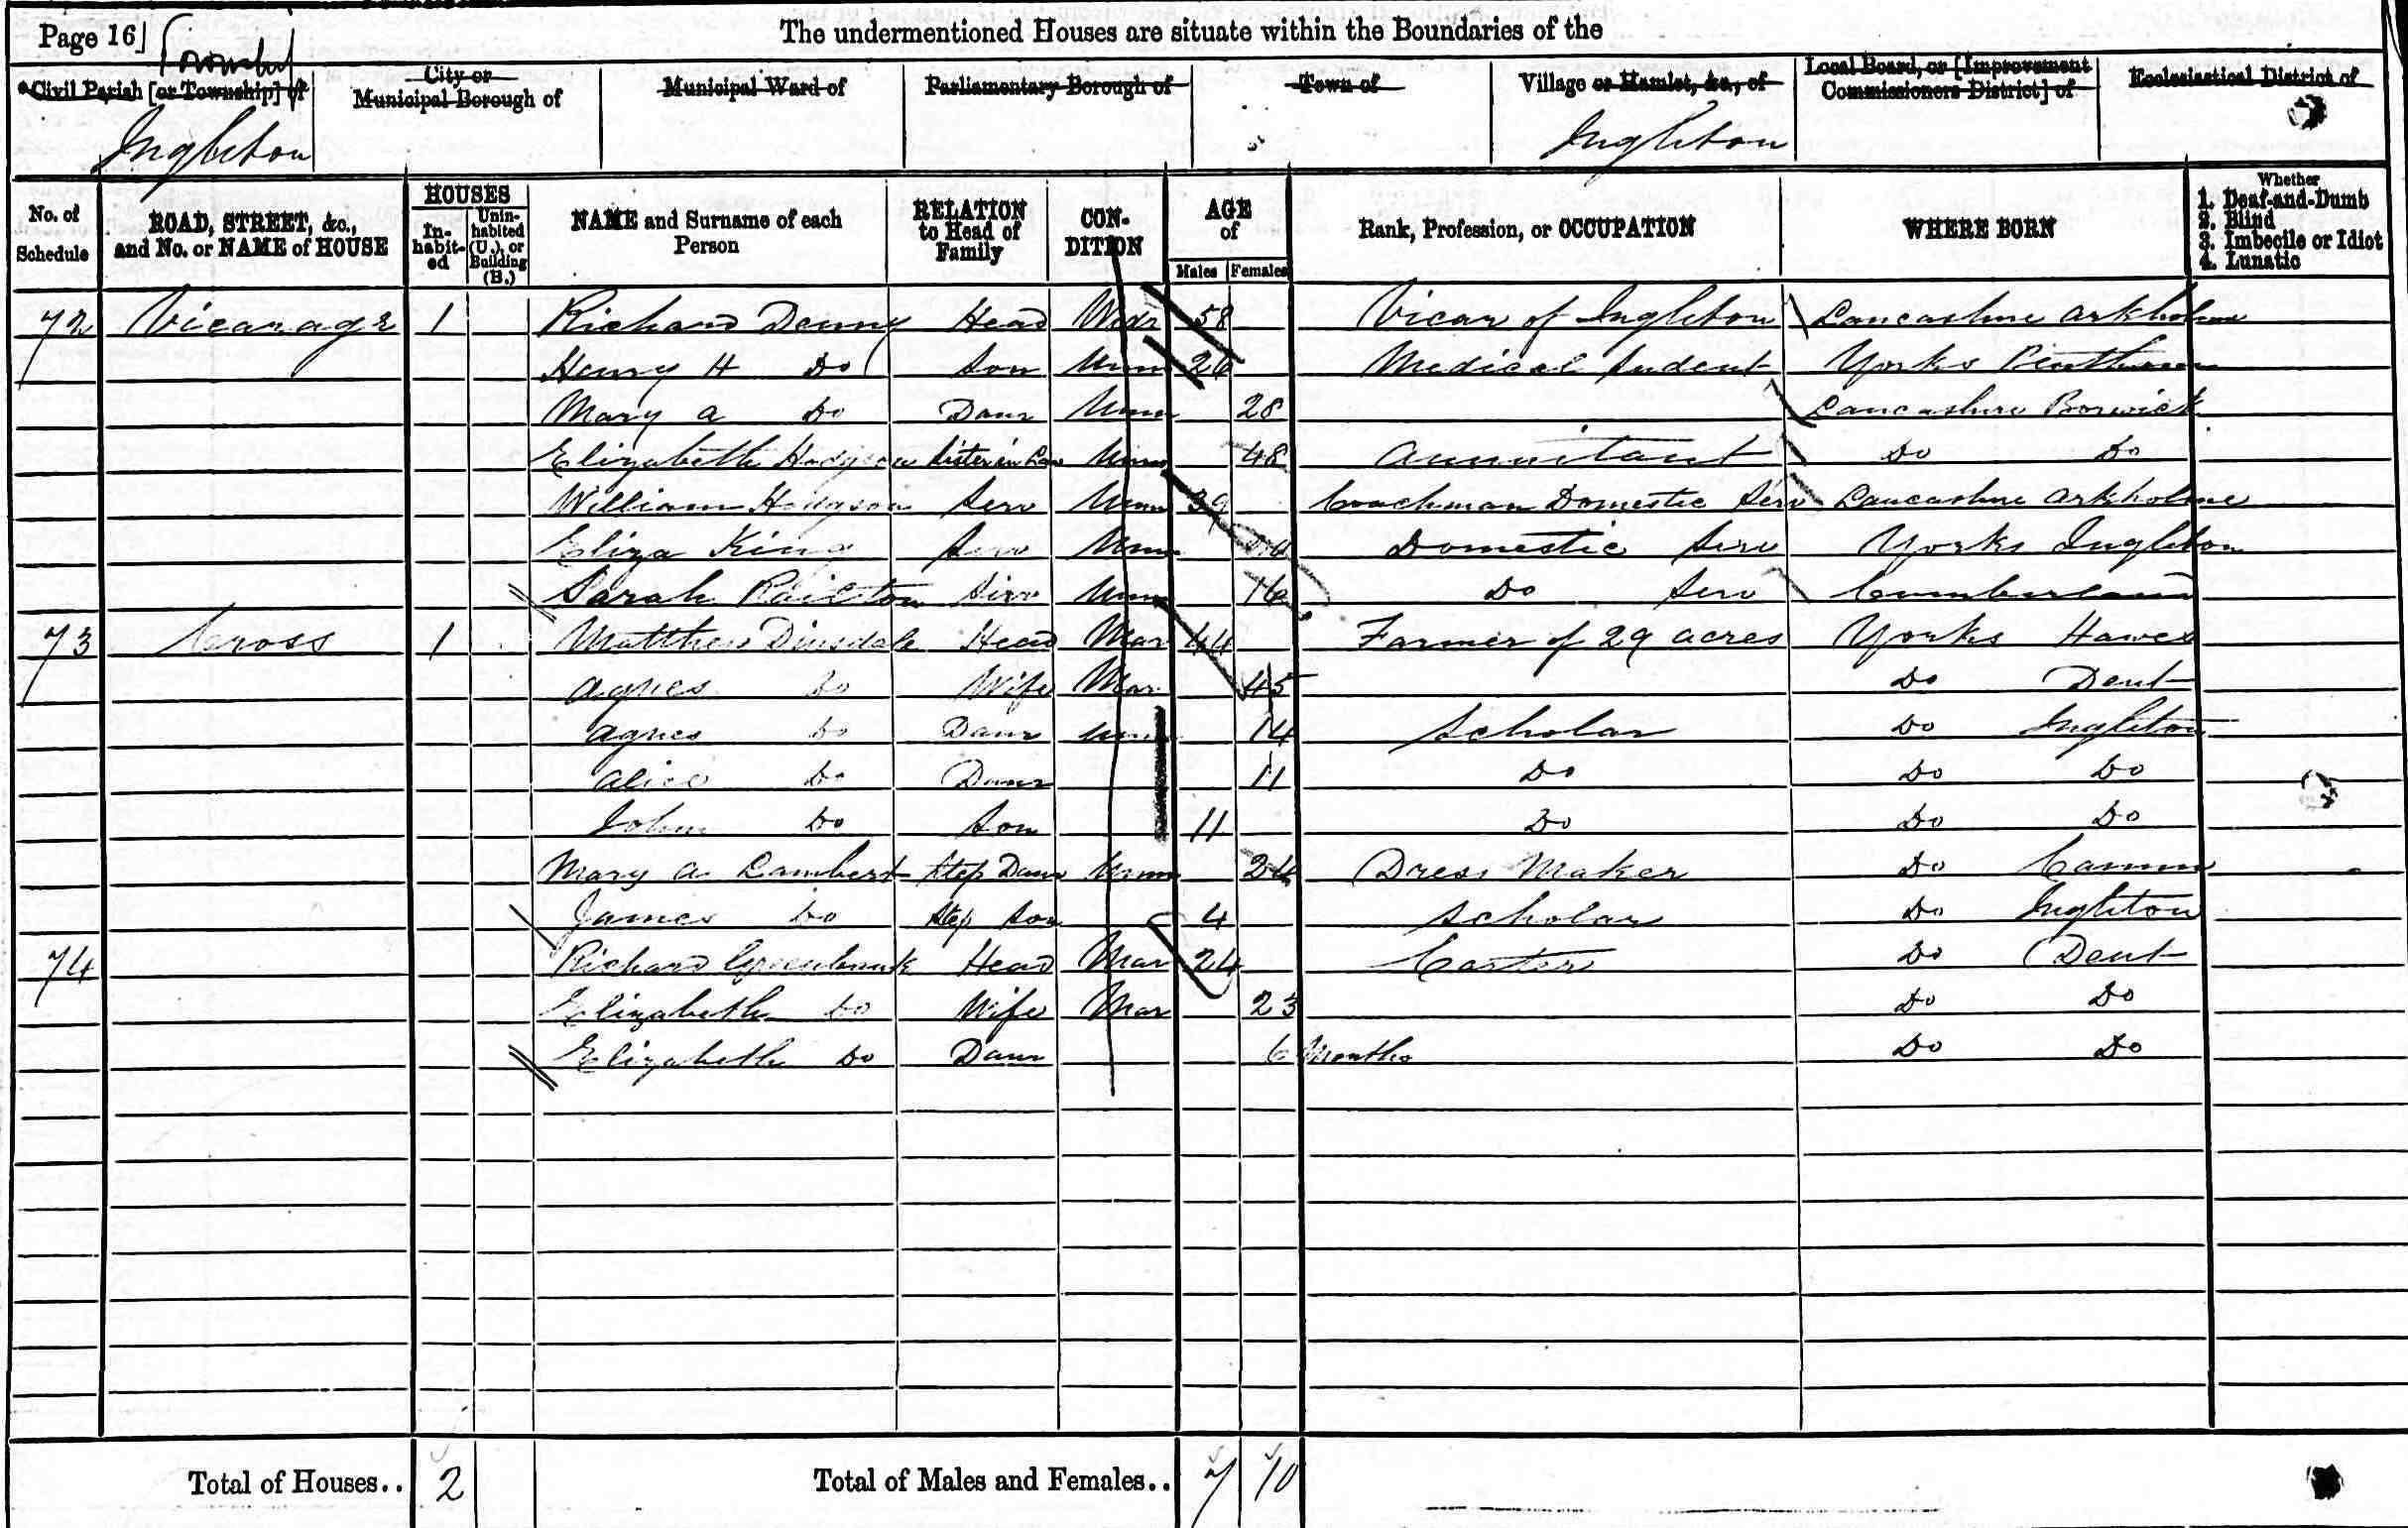 Page 16] The undermentioned Houses are situate within the Boundaries of the
Township
Civil Parish [or Township] of City or Municipal Borough of Municipal Ward of Parliamentary Borough of Town of Village or Hamlet, &c., of Local Board, or [Improvement Commissioners District] of Ecclesiastical District of
Ingleton Ingleton
No. of Schedule ROAD, STREET, &c., and No. or NAME of HOUSE HOUSES Inhabited Uninhabited (U.), or Building (B.) NAME and Surname of each Person RELATION to Head of Family CONDITION AGE of Males Females Rank, Profession, or OCCUPATION WHERE BORN Whether 1. Deaf-and-Dumb 2. Blind 3. Imbecile or Idiot 4. Lunatic
72 Vicarage 1 Richard Denny Head Widr 58 Vicar of Ingleton Lancashire Arkholme
Henry H Do Son Unm 26 Medical Student Yorks
Mary A Do Daur Unm 28 Lancashire Borwick
Elizabeth Hodgson Sister in Law Unm 48 Annuitant Do Do
William Hodgson Serv Unm 39 Coachman Domestic Serv Lancashire Arkholme
Eliza King Serv Unm Domestic Serv Yorks Ingleton
Sarah Railton Serv Unm 16 Do Serv Cumberland
73 Cross 1 Matthew Dinsdale Head Mar 44 Farmer of 29 acres Yorks Hawes
Agnes Do Wife Mar 45 Do Dent
Agnes Do Daur Unm 14 Scholar Do Ingleton
Alice Do Daur 11 Do Do Do
John Do Son 11 Do Do Do
Mary A Lambert Step Daur Unm 24 Dress Maker Do Camm
James Do Step Son 4 Scholar Do Ingleton
74 Richard Greenbank Head Mar 24 Carter Do Dent
Elizabeth Do Wife Mar 23 Do Do
Elizabeth Do Daur 6 Months Do Do
Total of Houses.. 2 Total of Males and Females.. 7 10